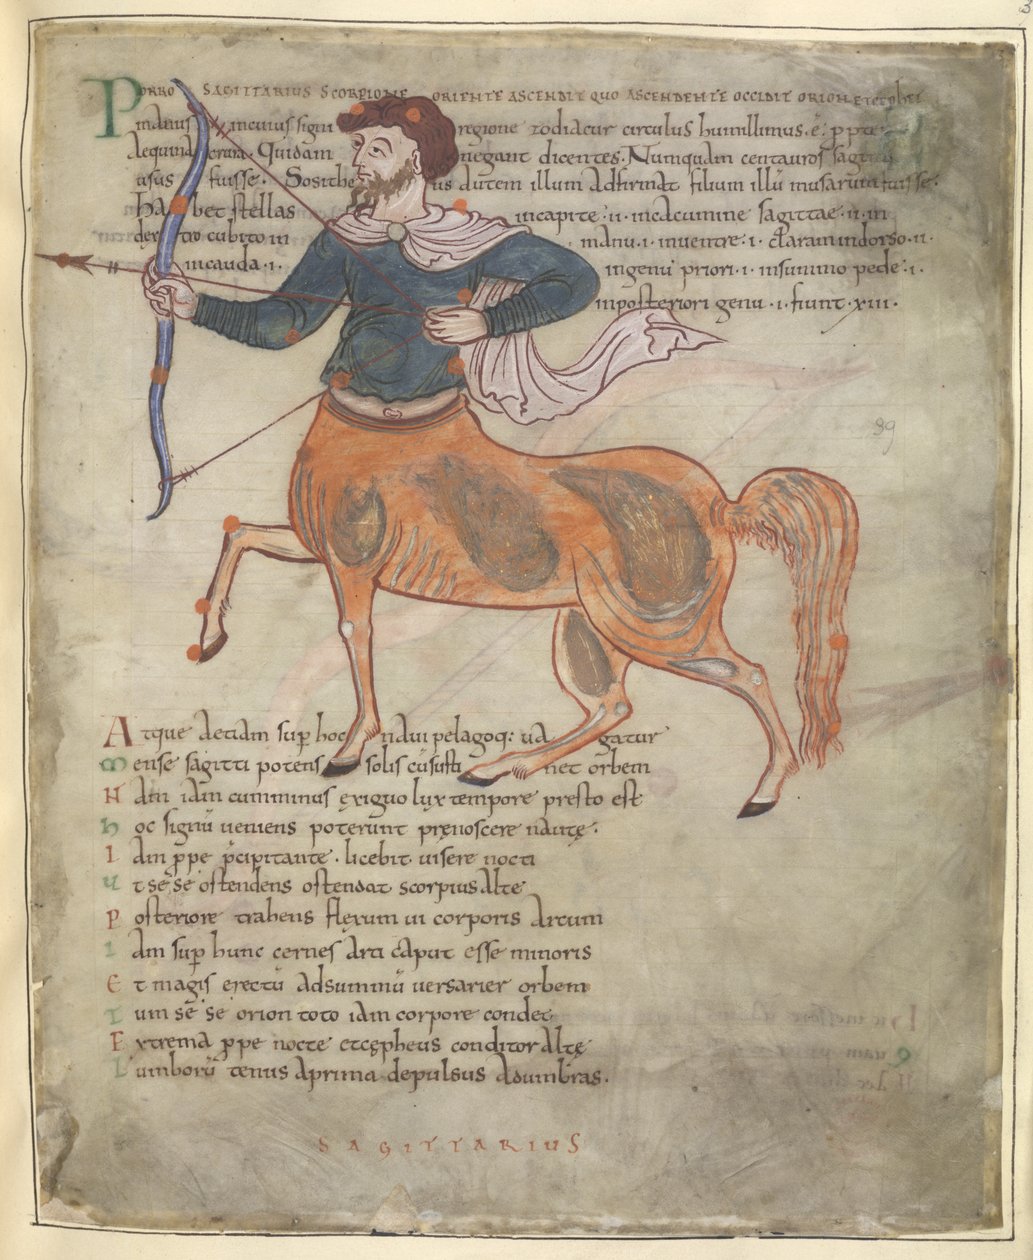 PORRO SAGITTARIUS SCORPIONE ORIENTE ASCENDIT QUO ASCENDENTE OCCIDIT ORION
incuius signi regione zodiacus circulus humillimus. ē. ppt
Quidam negant dicentes. Numquam centauros sagitt
usus fuisse. Sosithe us autem illum adfirmat filium illū musarum fuisse.
habet stellas incapite .ii. incacumine sagittae .ii. in
dextro cubito in manu .i. inventre .i. claram indorso .ii.
incauda .i. ingenu priori .i. insummo pede .i.
inposteriori genu .i. fiunt .xiii.
39
Atque aetiam sup hoc naui pelagoq: uagatur
mense sagitti potens solis cū susti net orbem
Nam iam cumminus exiguo lux tempore presto est
hoc signū ueniens poterunt prenoscere naute.
Iam ppe pcipitante. licebit uisere nocti
ut se se ostendens ostendat scorpius alte
Posteriore trahens flexum ui corporis arcum
iam sup hunc cernes arti caput esse minoris
Et magis erectū adsummū uersarier orbem
Tum se se orion toto iam corpore condet
Extrema ppe nocte et cepheus conditor alte
Lumborū tenus aprima depulsus adumbras.
SAGITTARIUS